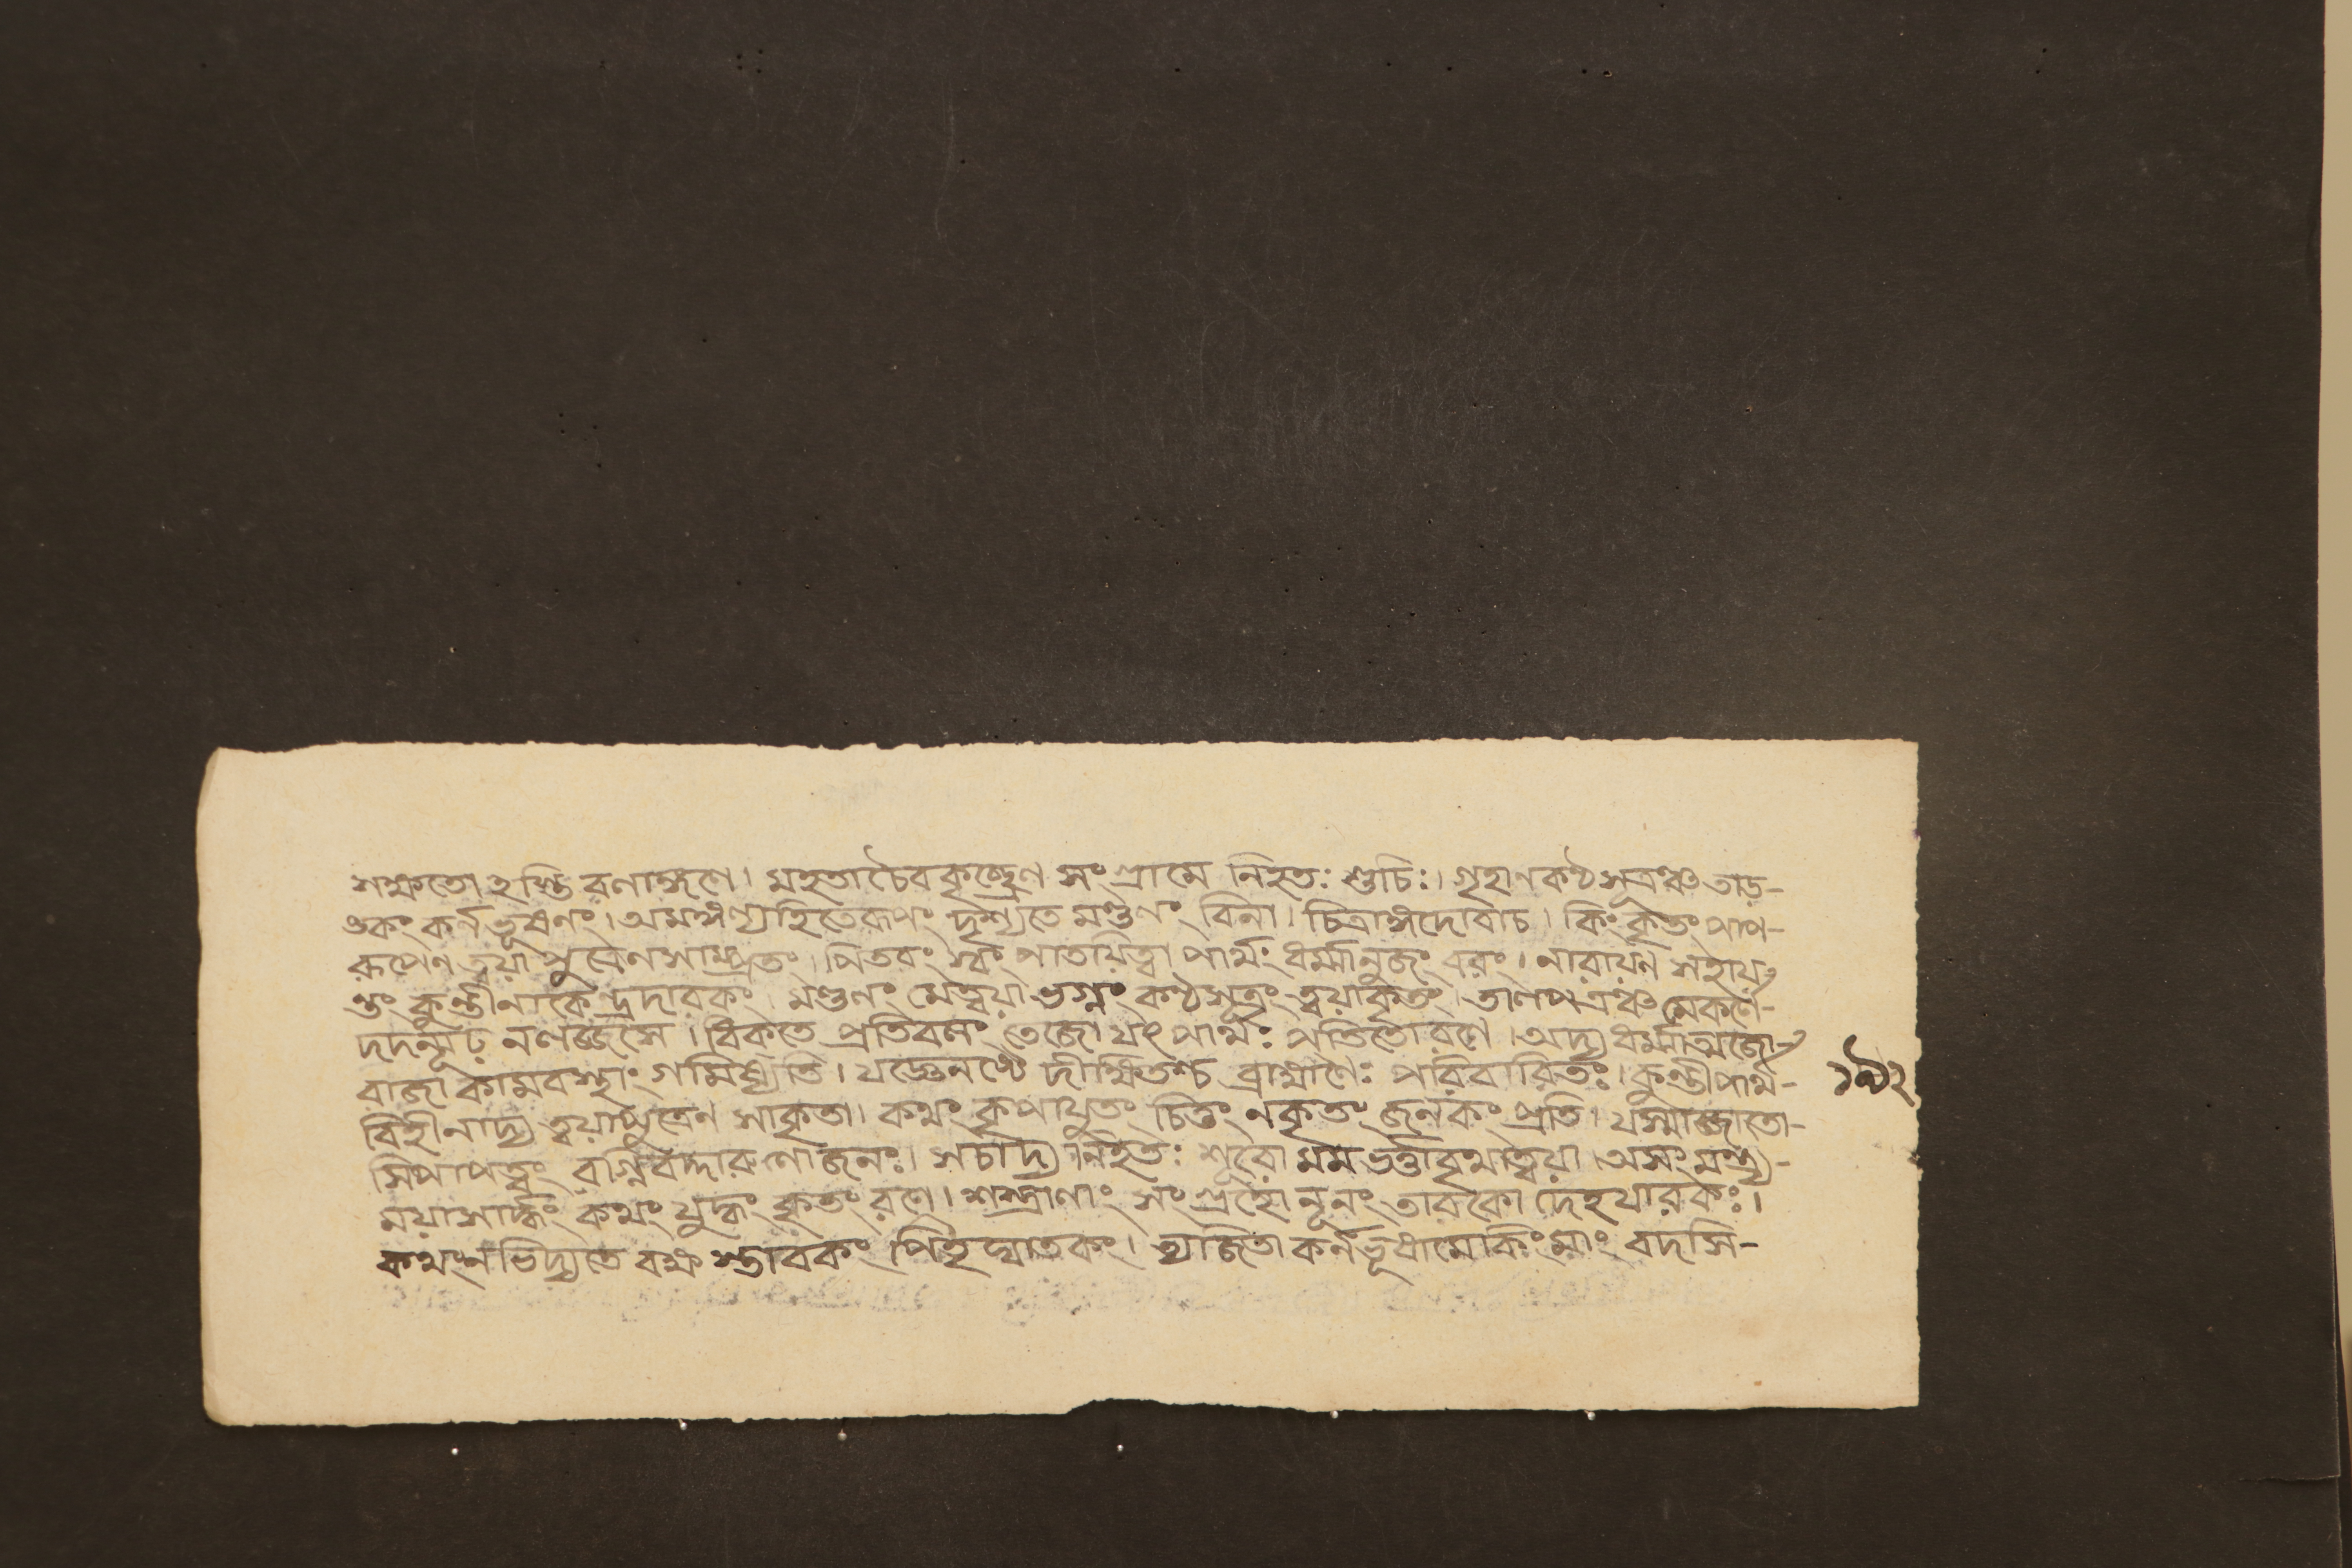 শক্ষতো হস্তি রণাঙ্গণে। মহতাচৈবকৃচ্ছ্রেণ সংগ্রামে নিহতঃ শুচিঃ। গৃহাণকণ্ঠসূত্রঞ্চ তাড়-
ঙকং কর্নভূষনং। অমঙ্গল্যংহিতেরূপং দৃশ্যতে মণ্ডণং বিনা। চিত্রাঙ্গদোবাচ। কিং কৃতং পাপ-
রূপেণ ত্বয়া পুত্রেনসাম্প্রতং। পিতরং স্বং পাতয়িত্বা পার্থং ধর্ম্মানুজং বরং। নারায়ণ সহায়
ন্তং কুন্তীনাকেন্দ্রদারকং। মণ্ডণং মেত্বয়া ভগ্নং কণ্ঠসূত্রং ত্বয়াকৃতং। তালপত্রঞ্চ মেকর্ণে-
দদন্মূঢ় নলজ্জসে। বিকতে প্রতিবলং তেজো যৎ পার্থঃ পতিতোরণে। অদ্য ধর্ম্মাত্মজো-
রাজা কামবস্থাং গমিষ্যতি। যজ্ঞেন দীক্ষিতশ্চ ব্রাহ্মণৈঃ পরিবারিতঃ। কুন্তীপার্থ- ১৯২
বিহীনাদ্য ত্বয়াপুত্রেণ সাকৃতা। কথং কৃপাযুতং চিত্তং নকৃতং জনকং প্রতি। যস্মাজ্জাতো-
সিপাপত্বং বাগ্নিবদ্দারুণোজনঃ। সচাদ্য নিহতঃ শূরো মম ভর্ত্তাবৃথাত্বয়া। অসংমন্ত্র্য-
ময়াসার্দ্ধং কথং যুদ্ধং কৃতং রণে। শস্ত্রাণাং সং নূনং তাবকো দেহধারকঃ।
কথংন ভিদ্যতে বক্ষ স্তাবকং পিতৃঘাতকং। ত্যাজিতা কর্নভূষামেকিংমাং বদসি-